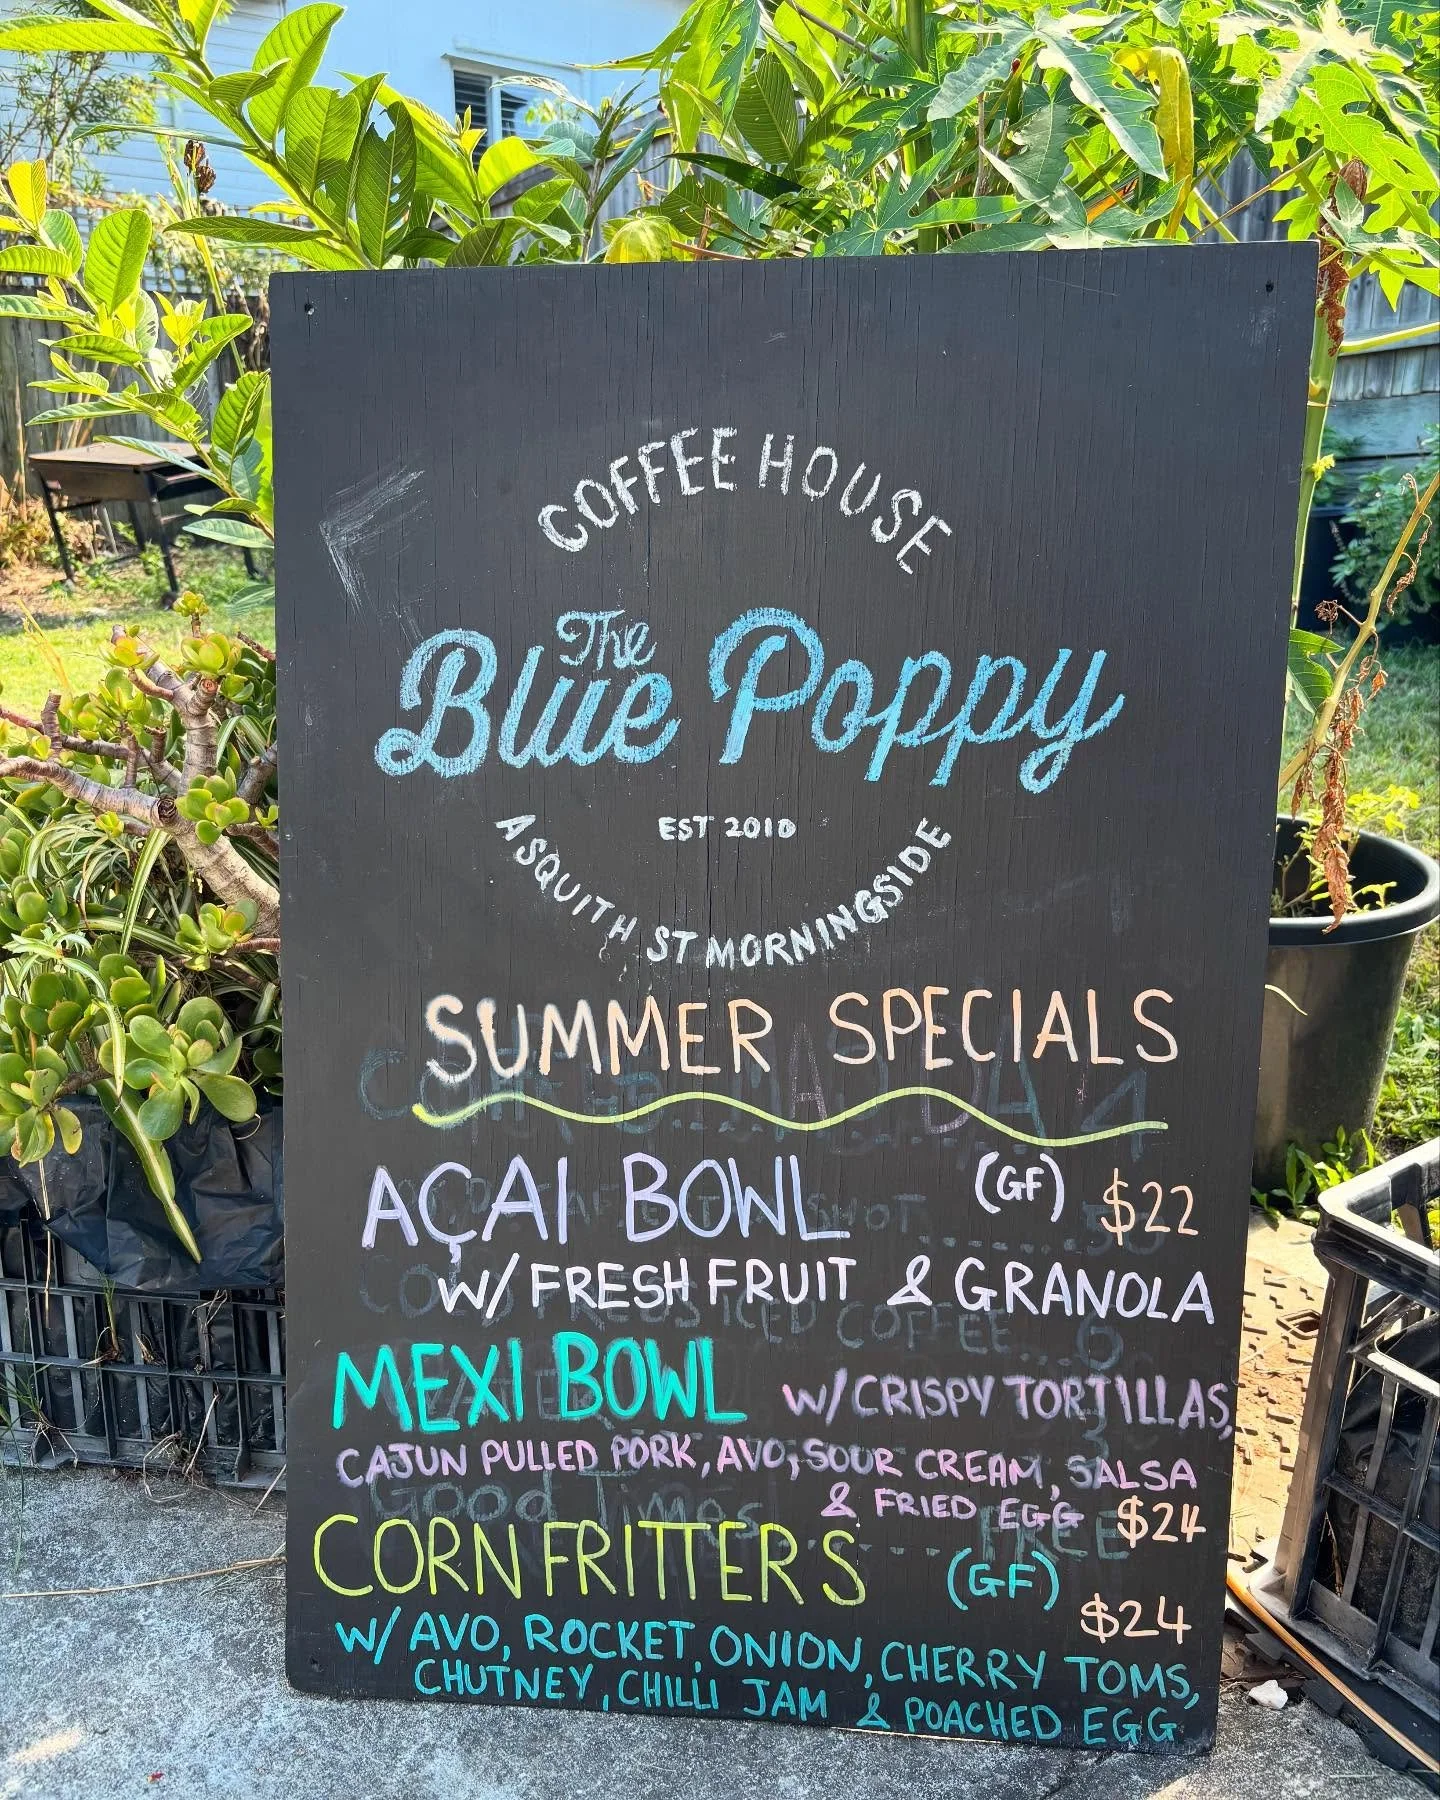 COFFEE HOUSE
The
Blue Poppy
EST 2010
ASQUITH ST MORNINGSIDE
SUMMER SPECIALS
AÇAI BOWL (GF) $22
W/ FRESH FRUIT & GRANOLA
MEXI BOWL W/ CRISPY TORTILLAS,
CAJUN PULLED PORK, AVO, SOUR CREAM, SALSA
& FRIED EGG $24
Good Times ........ FREE
CORN FRITTERS (GF) $24
W/ AVO, ROCKET, ONION, CHERRY TOMS,
CHUTNEY, CHILLI JAM & POACHED EGG